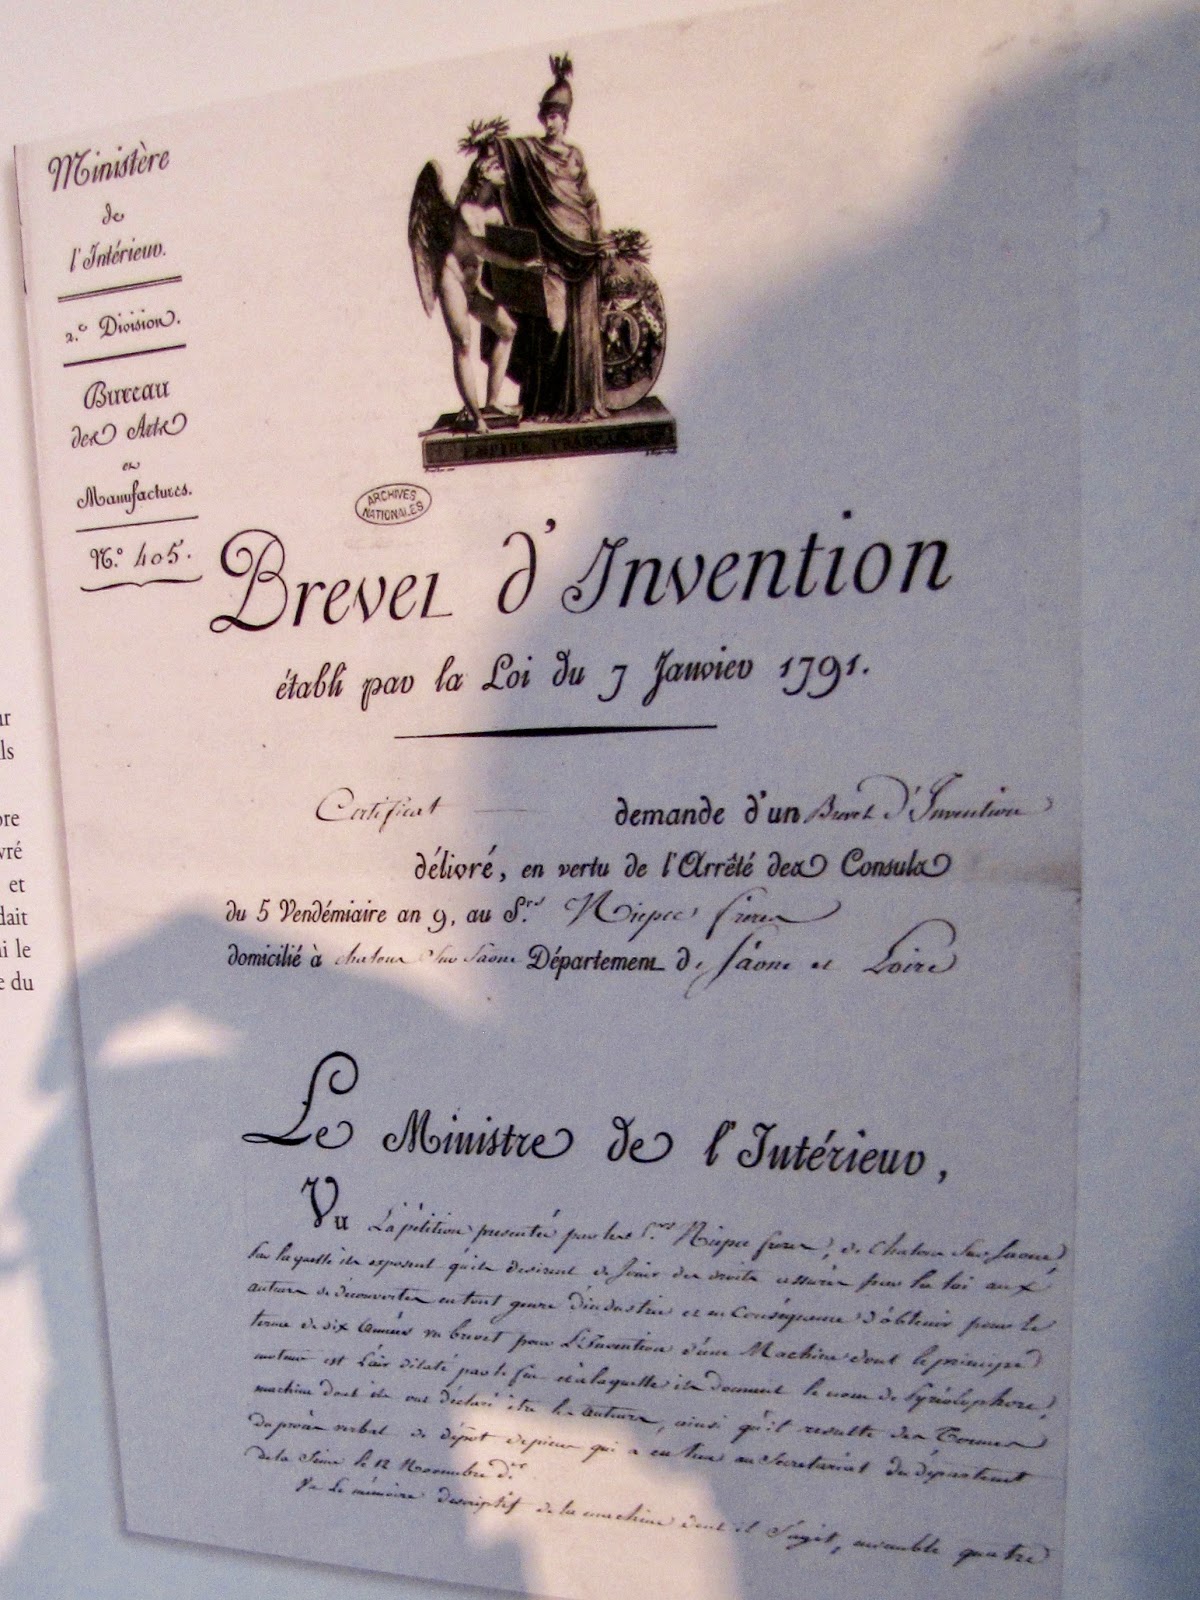 Ministère
de
l'Intérieur.
2.e Division.
Bureau
des Arts
et
Manufactures.
N.o 405.
EMPIRE FRANCAIS
ARCHIVES
NATIONALES
Brevet d'Invention
établi par la Loi du 7 Janvier 1791.
Certificat demande d'un Brevet d'Invention
délivré, en vertu de l'Arrêté des Consuls
du 5 Vendémiaire an 9, au S.rs Niepce freres
domicilié à chalon Sur Saone Département de Saone et Loire
Le Ministre de l'Intérieur,
Vu La pétition presentée par les S.rs Niepce freres, de Chalon Sur Saone,
par laquelle ils exposent qu'ils desirent de Jouir des droits assurés par la loi aux
auteurs de découvertes en tout genre d'industrie et en Conséquence d'obtenir pour le
terme de dix années un brevet pour L'Invention d'une Machine dont le principe
moteur est l'air dilaté par le feu et à laquelle ils donnent le nom de Pyréolophore,
machine dont ils ont déclaré être les auteurs, ainsi qu'il resulte des Termes
du procès verbal de dépot de pieces qui a eu lieu au Secretariat du département
de la Seine le 12 Novembre d.er
Vu Le mémoire descriptif de la machine dont il S'agit, ensemble quatre
ur
ls
ore
vré
et
dait
ni le
e du